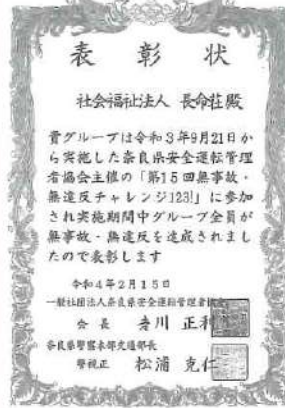 表彰状
社会福祉法人 長命荘殿
貴グループは令和3年9月21日か
ら実施した奈良県安全運転管理
者協会主催の「第15回無事故・
無違反チャレンジ123!」に参加
され実施期間中グループ全員が
無事故・無違反を達成されまし
たので表彰します
令和4年2月15日
一般社団法人奈良県安全運転管理者協会
会長 川 正和
奈良県警察本部交通部長
警視正 松浦 克仁